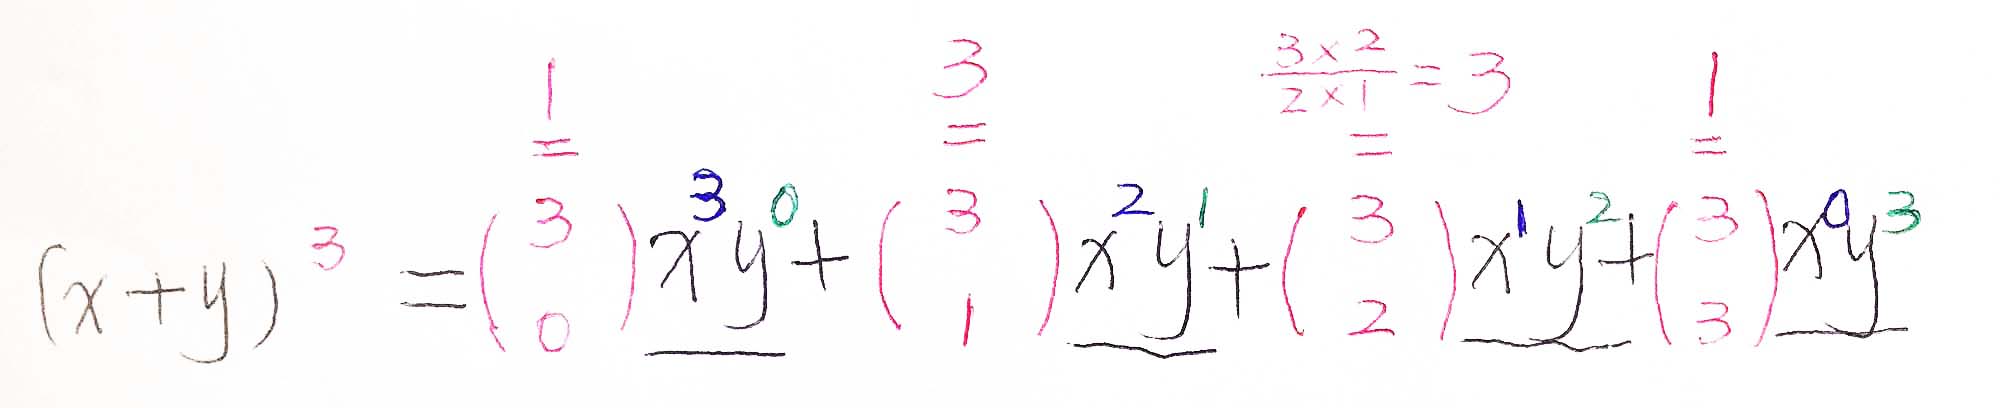 1 3 3×2/2×1 = 3 1
= = = =
(x+y)³ = (3 0) x³y⁰ + (3 1) x²y¹ + (3 2) x¹y² + (3 3) x⁰y³